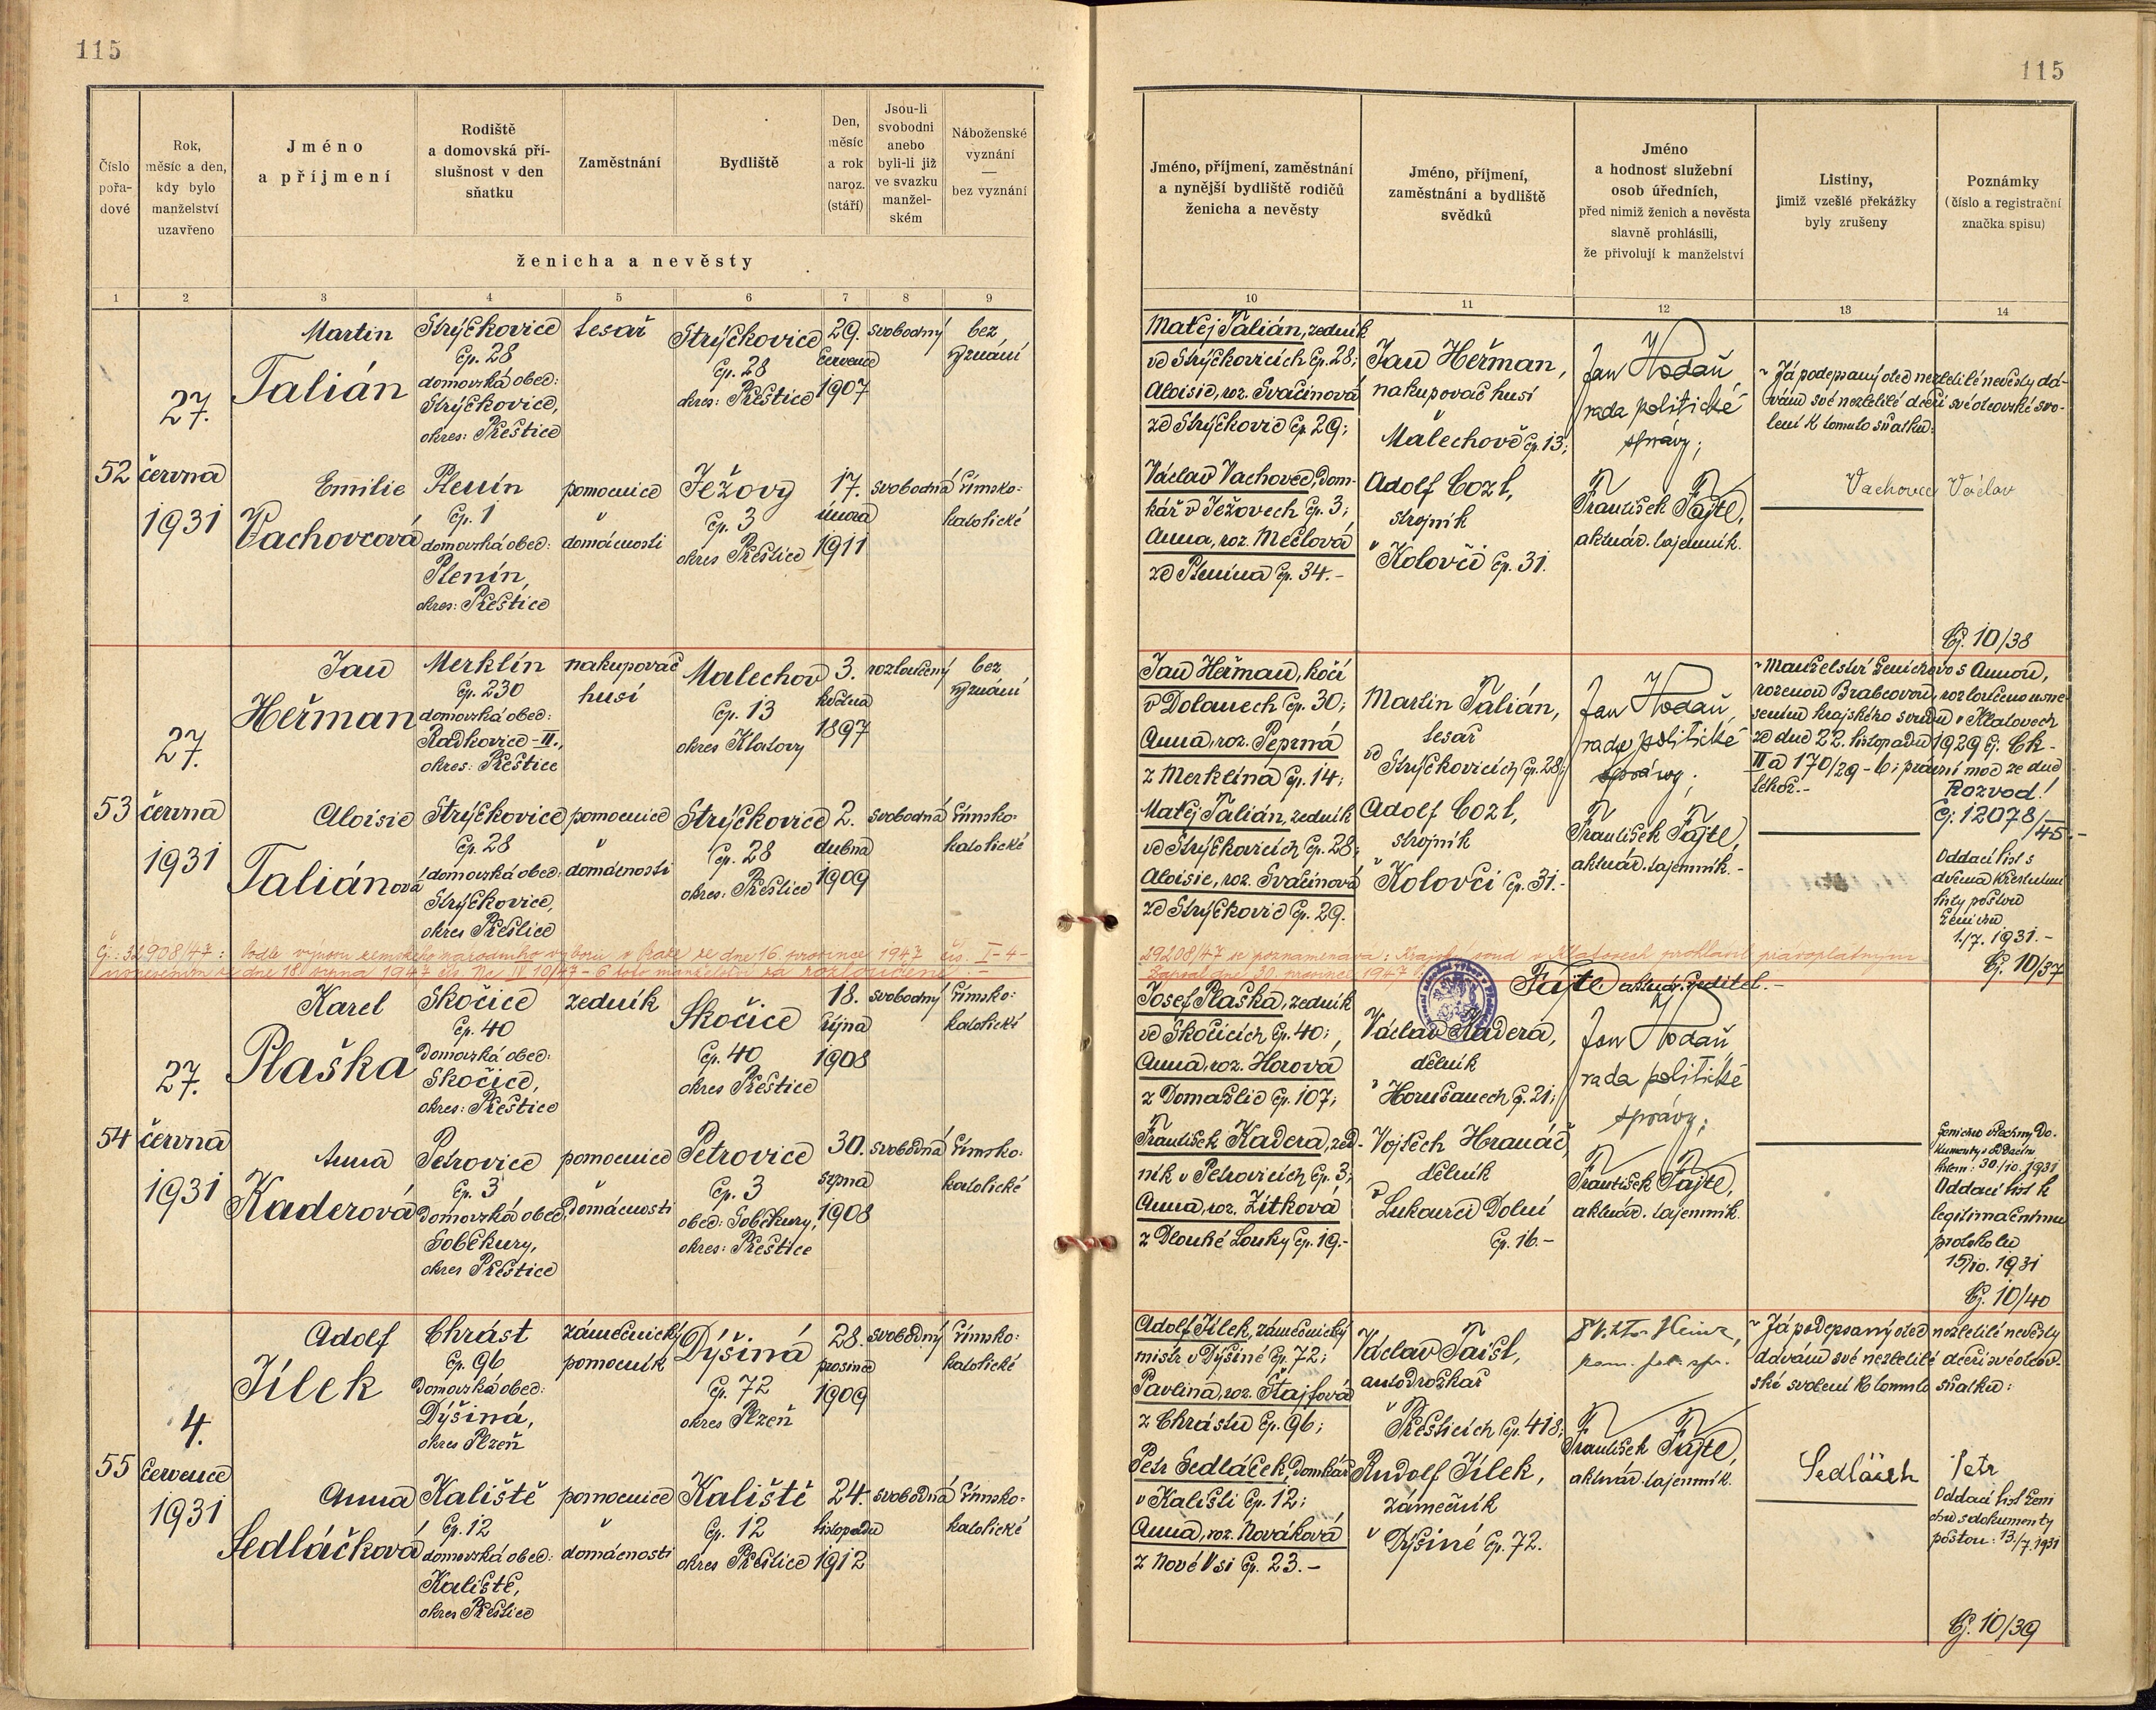 115
115
Číslo pořa- dové
Rok, měsíc a den, kdy bylo manželství uzavřeno
Jméno a příjmení
Rodiště a domovská pří- slušnost v den sňatku
Zaměstnání
Bydliště
Den, měsíc a rok naroz. (stáří)
Jsou-li svobodni anebo byli-li již ve svazku manžel- ském
Náboženské vyznání — bez vyznání
ženicha a nevěsty
1 2 3 4 5 6 7 8 9
Jméno, příjmení, zaměstnání a nynější bydliště rodičů ženicha a nevěsty
Jméno, příjmení, zaměstnání a bydliště svědků
Jméno a hodnost služební osob úředních, před nimiž ženich a nevěsta slavně prohlásili, že přivolují k manželství
Listiny, jimiž vzešlé překážky byly zrušeny
Poznámky (číslo a registrační značka spisu)
10 11 12 13 14
52
27.
června
1931
Martin
Talián
Strýčkovice
čp. 28
domovská obec:
Strýčkovice,
okres: Přeštice
tesař
Strýčkovice
čp. 28
okres: Přeštice
29.
července
1907
svobodný
bez
vyznání
Emilie
Vachovcová
Plenín
čp. 1
domovská obec:
Plenín,
okres: Přeštice
pomocnice
v
domácnosti
Ježovy
čp. 3
okres Přeštice
17.
února
1911
svobodná
římsko-
katolické
Matěj Talián, zedník
ve Strýčkovicích čp. 28;
Aloisie, roz. Svačinová
ze Strýčkovic čp. 29;
Václav Vachovec, dom-
kář v Ježovech čp. 3;
Anna, roz. Mečlová
ze Plenína čp. 34.-
Jan Heřman,
nakupovač husí
Malechově čp. 13;
Adolf Cozl,
strojník
v Kolovči čp. 31.
Jan Hodaň
rada politické
správy;
František Fajtl,
aktuár. tajemník.
Já podepsaný otec nezletilé nevěsty dá-
vám své nezletilé dceři své otcovské svo-
lení k tomuto sňatku:
Vachovec Václav
Čj. 10/38
53
27.
června
1931
Jan
Heřman
Merklín
čp. 230
domovská obec:
Radkovice-II.,
okres: Přeštice
nakupovač
husí
Malechov
čp. 13
okres Klatovy
3.
května
1897
rozloučený
bez
vyznání
Aloisie
Taliánová
Strýčkovice
čp. 28
domovská obec:
Strýčkovice,
okres Přeštice
pomocnice
v
domácnosti
Strýčkovice
čp. 28
okres: Přeštice
2.
dubna
1909
svobodná
římsko-
katolické
Jan Heřman, kočí
v Dolanech čp. 30;
Anna, roz. Peprná
z Merklína čp. 14;
Matěj Talián, zedník
ve Strýčkovicích čp. 28;
Aloisie, roz. Svačinová
ze Strýčkovic čp. 29.
Martin Talián,
tesař
ve Strýčkovicích čp. 28;
Adolf Cozl,
strojník
v Kolovči čp. 31.-
Jan Hodaň
rada politické
správy;
František Fajtl,
aktuár. tajemník.-
Manželství ženichovo s Annou,
rozenou Brabcovou, rozloučeno usne-
sením krajského soudu v Klatovech
ze dne 22. listopadu 1929 čj. Ck-
IIa 170/29-6; právní moc ze dne
téhož.-
Rozvod!
Čj. 12078/45.-
Oddací list s
dvěma křestními
listy poštou
ženichu
1./7. 1931.-
Čj. 10/37
Čj. 32908/47: Podle výnosu zemského národního výboru v Praze ze dne 16. prosince 1947 čís. I-4-
29208/47 se poznamenává: Krajský soud v Klatovech prohlásil pravoplatným
usnesením ze dne 18. srpna 1947 čís. Nc IV 10/47-6 toto manželství za rozloučené.-
Zapsal dne 30. prosince 1947:
Fajtl aktuár. ředitel.-
54
27.
června
1931
Karel
Plaška
Skočice
čp. 40
Domovská obec:
Skočice,
okres: Přeštice
zedník
Skočice
čp. 40
okres Přeštice
18.
října
1908
svobodný
římsko-
katolické
Anna
Kaderová
Petrovice
čp. 3
Domovská obec:
Soběkury,
okres Přeštice
pomocnice
v
domácnosti
Petrovice
čp. 3
obec: Soběkury,
okres: Přeštice
30.
srpna
1908
svobodná
římsko-
katolické
Josef Plaška, zedník
ve Skočicích čp. 40;
Anna, roz. Horová
z Domažlic čp. 107;
František Kadera, zed-
ník v Petrovicích čp. 3;
Anna, roz. Žitková
z Dlouhé Louky čp. 19.-
Václav Kadera,
dělník
v Horušanech čp. 21;
Vojtěch Hranáč,
dělník
v Lukavici Dolní
čp. 16.-
Jan Hodaň
rada politické
správy;
František Fajtl,
aktuár. tajemník.
Ženichu všechny do-
kumenty s oddacím
listem: 30./10. 1931
Oddací list k
legitimačnímu
protokolu
15/10. 1931
Čj. 10/40
55
4.
července
1931
Adolf
Jílek
Chrást
čp. 96
Domovská obec:
Dýšiná,
okres Plzeň
zámečnický
pomocník
Dýšiná
čp. 72
okres Plzeň
28.
prosince
1909
svobodný
římsko-
katolické
Anna
Sedláčková
Kaliště
čp. 12
domovská obec:
Kaliště,
okres Přeštice
pomocnice
v
domácnosti
Kaliště
čp. 12
okres Přeštice
24.
listopadu
1912
svobodná
římsko-
katolické
Adolf Jílek, zámečnický
mistr v Dýšiné čp. 72;
Pavlína, roz. Štajfová
z Chrástu čp. 96;
Petr Sedláček, domkář
v Kališti čp. 12;
Anna, roz. Nováková
z Nové Vsi čp. 23.-
Václav Taišl,
autodrožkař
v Přešticích čp. 418;
Rudolf Jílek,
zámečník
v Dýšiné čp. 72.
František Fajtl,
aktuár. tajemník.
Já podepsaný otec nezletilé nevěsty
dávám své nezletilé dceři své otcov-
ské svolení k tomuto sňatku:
Sedláček Petr
Oddací list ženi
chu s dokumenty
poštou: 13./7. 1931
Čj. 10/39